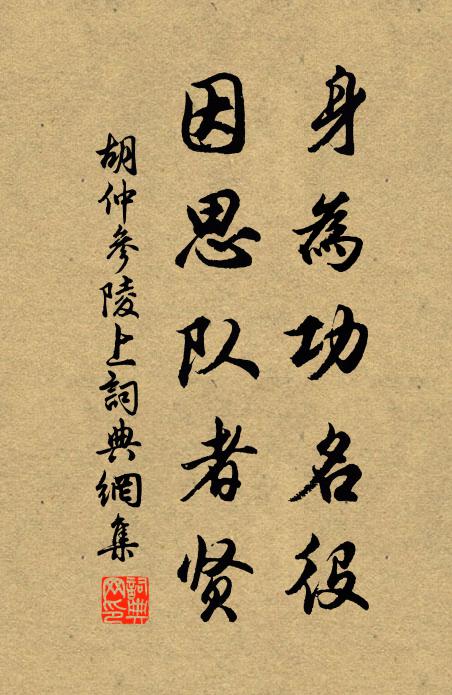 身為功名役
因思队者贤
胡仲參陵上詞典網集
詞典網印